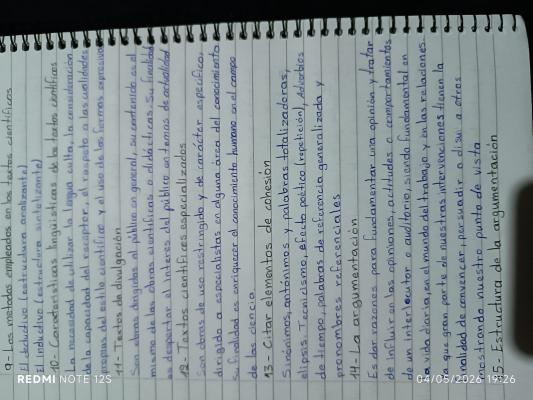 9- Los métodos empleados en los textos científicos
El deductivo (estructura analizante)
El inductivo (estructura sintetizante)
10- Características lingüísticas de los textos científicos
La necesidad de utilizar la lengua culta, la consideración
de la capacidad del receptor, el respeto a las cualidades
propias del estilo científico y el uso de las formas expresivas
11- Textos de divulgación
Son obras dirigidas al público en general, su contenido es el
mismo de las obras científicas o didácticas. Su finalidad
es despertar el interés del público en temas de actualidad
12- Textos científicos especializados
Son obras de uso restringido y de carácter específico,
dirigido a especialistas en alguna área del conocimiento
su finalidad es enriquecer el conocimiento humano en el campo
de las ciencia
13- Citar elementos de cohesión
Sinónimos, antónimos y palabras totalizadoras,
elipsis. Tecnicismo, efecto poético (repetición), Adverbios
de tiempo, palabras de referencia generalizada y
pronombres referenciales
14- La argumentación
Es dar razones para fundamentar una opinión y tratar
de influir en las opiniones, actitudes o comportamientos
de un interlocutor o auditorio, siendo fundamental en
la vida diaria, en el mundo del trabajo y en las relaciones
ya que gran parte de nuestras intervenciones tienen la
finalidad de convencer, persuadir o disu a otros
mostrando nuestro punto de vista
15- Estructura de la argumentación
REDMI NOTE 12S
04/05/2026 19:26